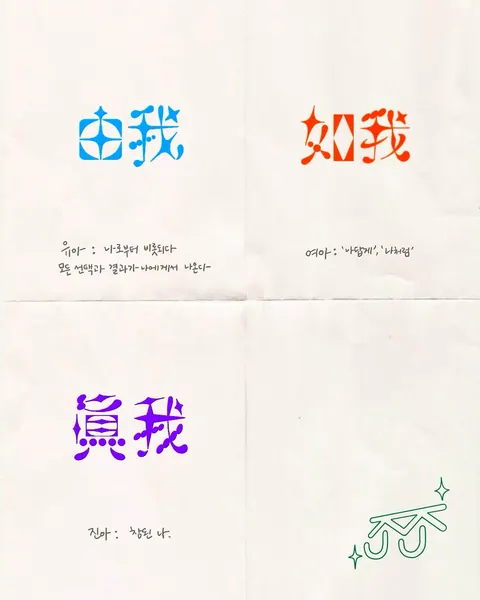 由我
유아 : 나로부터 비롯되다
모든 선택과 결과가 나에게서 나온다
如我
여아 : '나답게', '나처럼'
眞我
진아 : 참된 나.